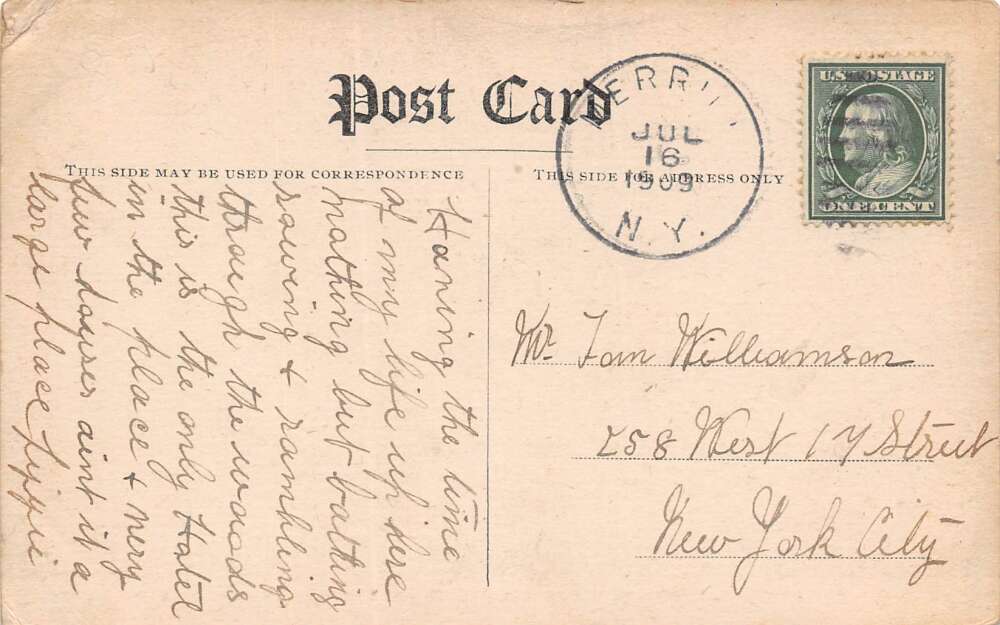 Post Card
THIS SIDE MAY BE USED FOR CORRESPONDENCE
THIS SIDE FOR ADDRESS ONLY
JUL
16
1909
N.Y.
U.S. POSTAGE
ONE CENT
Having the time
of my life up here
nothing but bathing
rowing & rambling
through the woods
this is the only Hotel
in the place & very
few houses aint it a
large place
Mr. Tom Williamson
258 West 17 Street
New York City